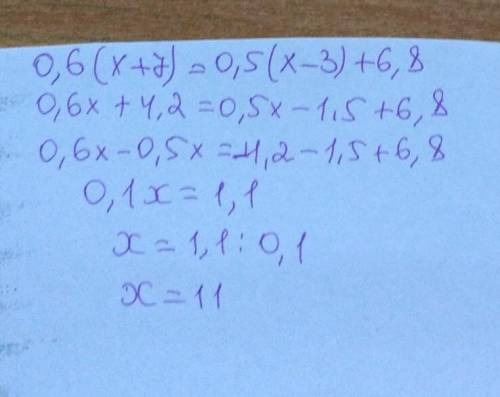 0,6(x+7)=0,5(x-3)+6,8
0,6x+4,2=0,5x-1,5+6,8
0,6x-0,5x=-4,2-1,5+6,8
0,1x=1,1
x=1,1:0,1
x=11